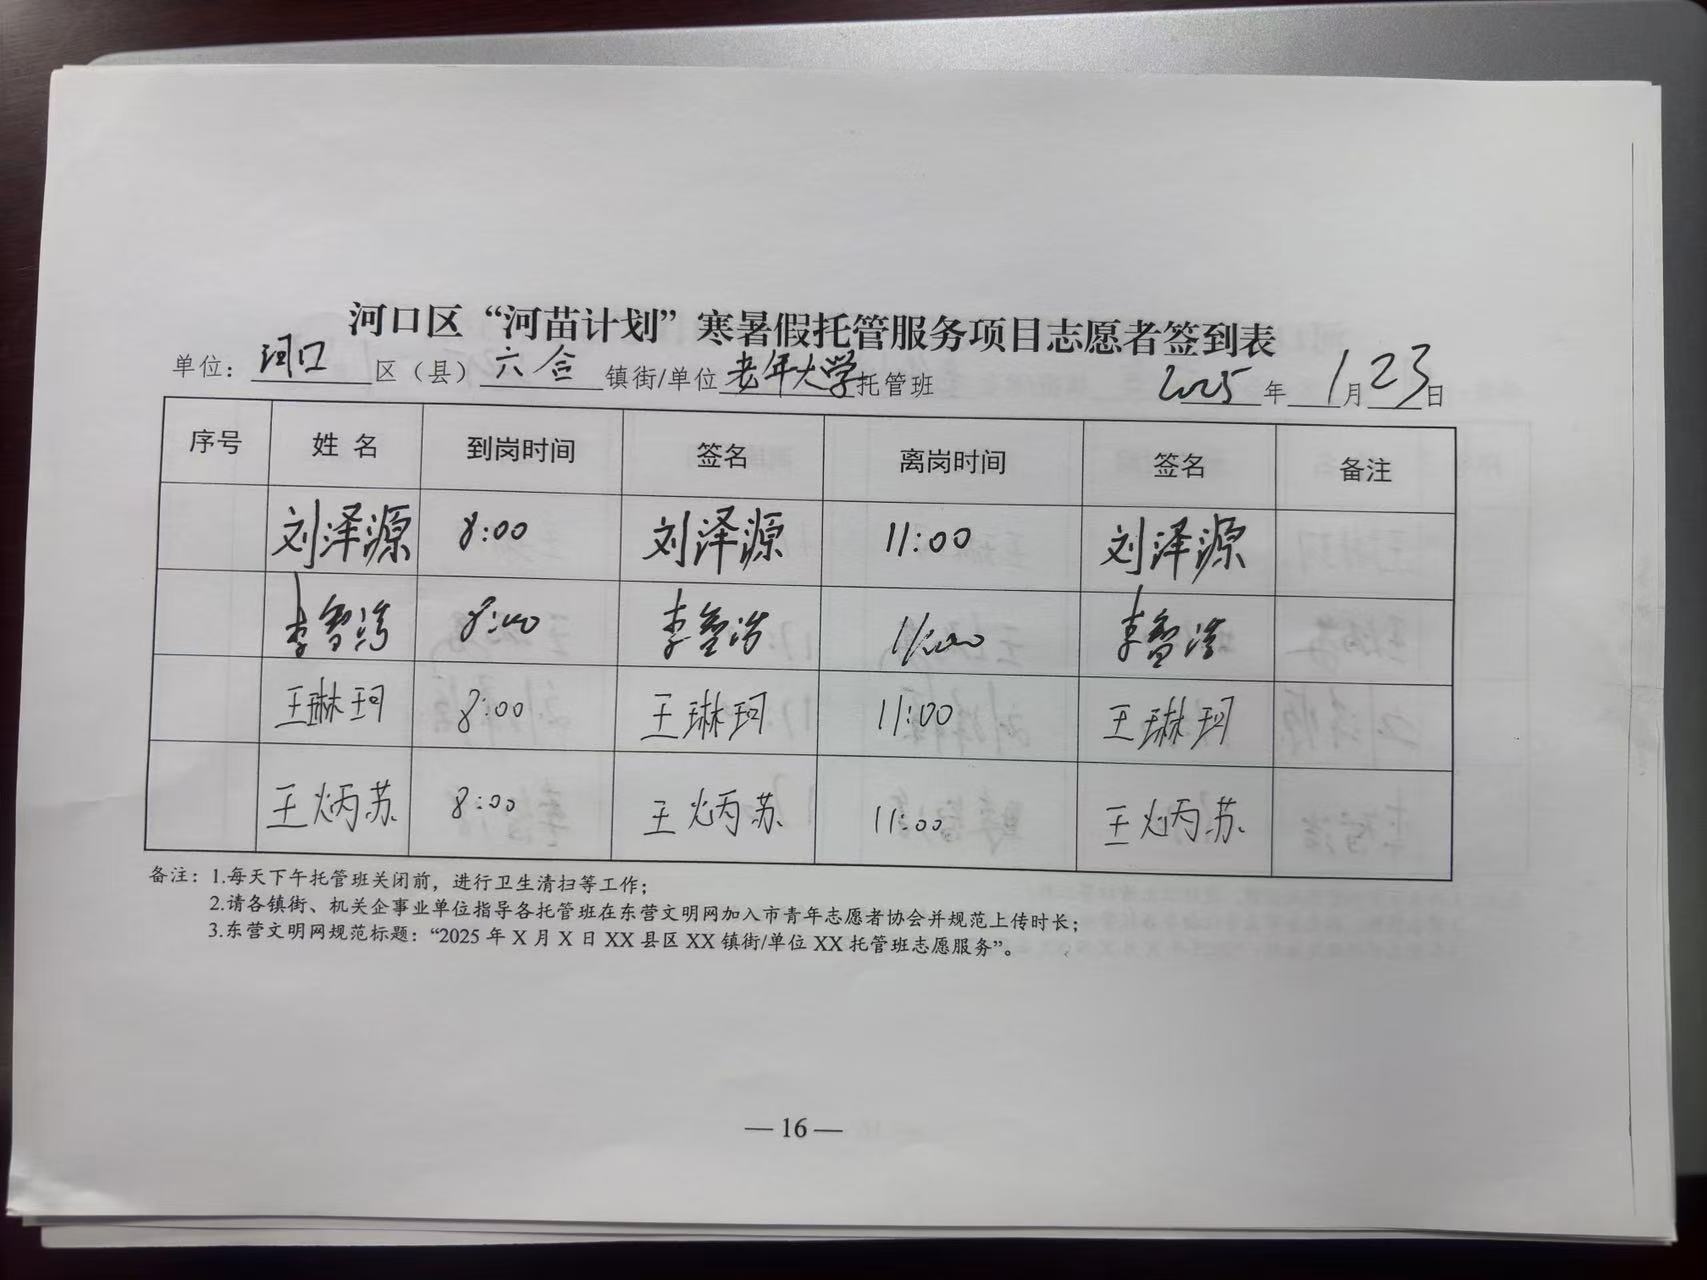 河口区“河苗计划”寒暑假托管服务项目志愿者签到表
单位：河口区（县）六合镇街/单位老年大学托管班 2025年1月23日
序号 姓名 到岗时间 签名 离岗时间 签名 备注
刘泽源 8:00 刘泽源 11:00 刘泽源
李智浩 8:00 李智浩 11:00 李智浩
王琳珂 8:00 王琳珂 11:00 王琳珂
王炳苏 8:00 王炳苏 11:00 王炳苏
备注：1.每天下午托管班关闭前，进行卫生清扫等工作；
2.请各镇街、机关企事业单位指导各托管班在东营文明网加入市青年志愿者协会并规范上传时长；
3.东营文明网规范标题：“2025年X月X日XX县区XX镇街/单位XX托管班志愿服务”。
—16—